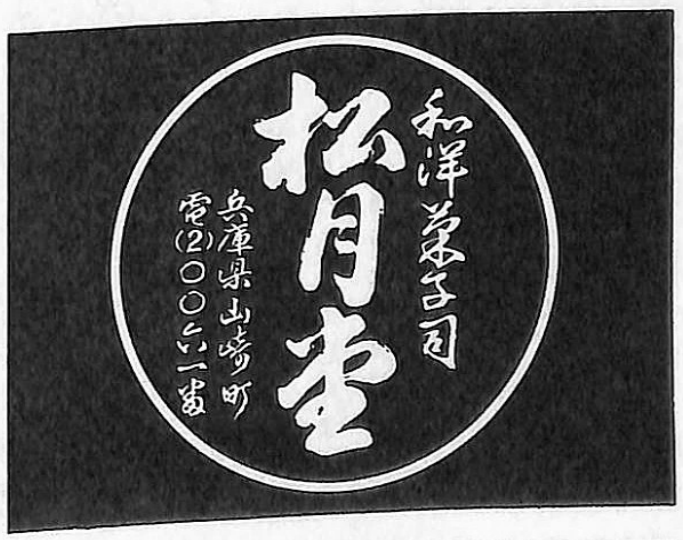 和洋菓子司
松月堂
兵庫県山崎町
電(2)〇〇六一番